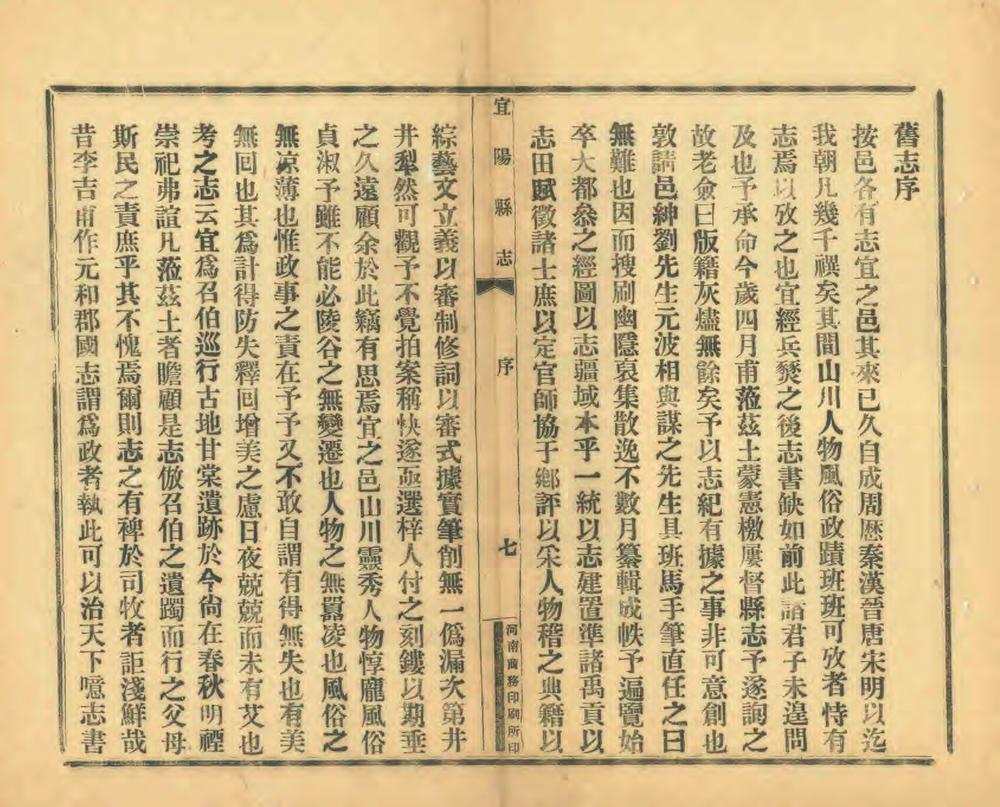 舊志序
按邑各有志宜之邑其來已久自成周歷秦漢晉唐宋明以迄
我朝凡幾千禩矣其間山川人物風俗政蹟班班可攷者恃有
志焉以攷之也宜經兵燹之後志書缺如前此諸君子未遑問
及也予承命今歲四月甫蒞茲土蒙憲檄屢督縣志予遂詢之
故老僉曰版籍灰燼無餘矣予以志紀有據之事非可意創也
敦請邑紳劉先生元波相與謀之先生具班馬手筆直任之曰
無難也因而搜刷幽隱裒集散逸不數月纂輯成帙予遍覽始
卒大都叅之經圖以志疆域本乎一統以志建置準諸禹貢以
志田賦徵諸士庶以定官師協于鄉評以采人物稽之典籍以
宜陽縣志 序 七 河南商務印刷所印
綜藝文立義以審制修詞以審式據實筆削無一僞漏次第井
井犁然可觀予不覺拍案稱快遂亟選梓人付之刻鏤以期垂
之久遠顧余於此竊有思焉宜之邑山川靈秀人物惇龐風俗
貞淑予雖不能必陵谷之無變遷也人物之無囂凌也風俗之
無凉薄也惟政事之責在予予又不敢自謂有得無失也有美
無回也其爲計得防失釋回增美之慮日夜兢兢而未有艾也
考之志云宜爲召伯巡行古地甘棠遺跡於今尙在春秋明禋
崇祀弗諠凡蒞茲土者瞻顧是志倣召伯之遺躅而行之父母
斯民之責庶乎其不愧焉爾則志之有裨於司牧者詎淺鮮哉
昔李吉甫作元和郡國志謂爲政者執此可以治天下噫志書